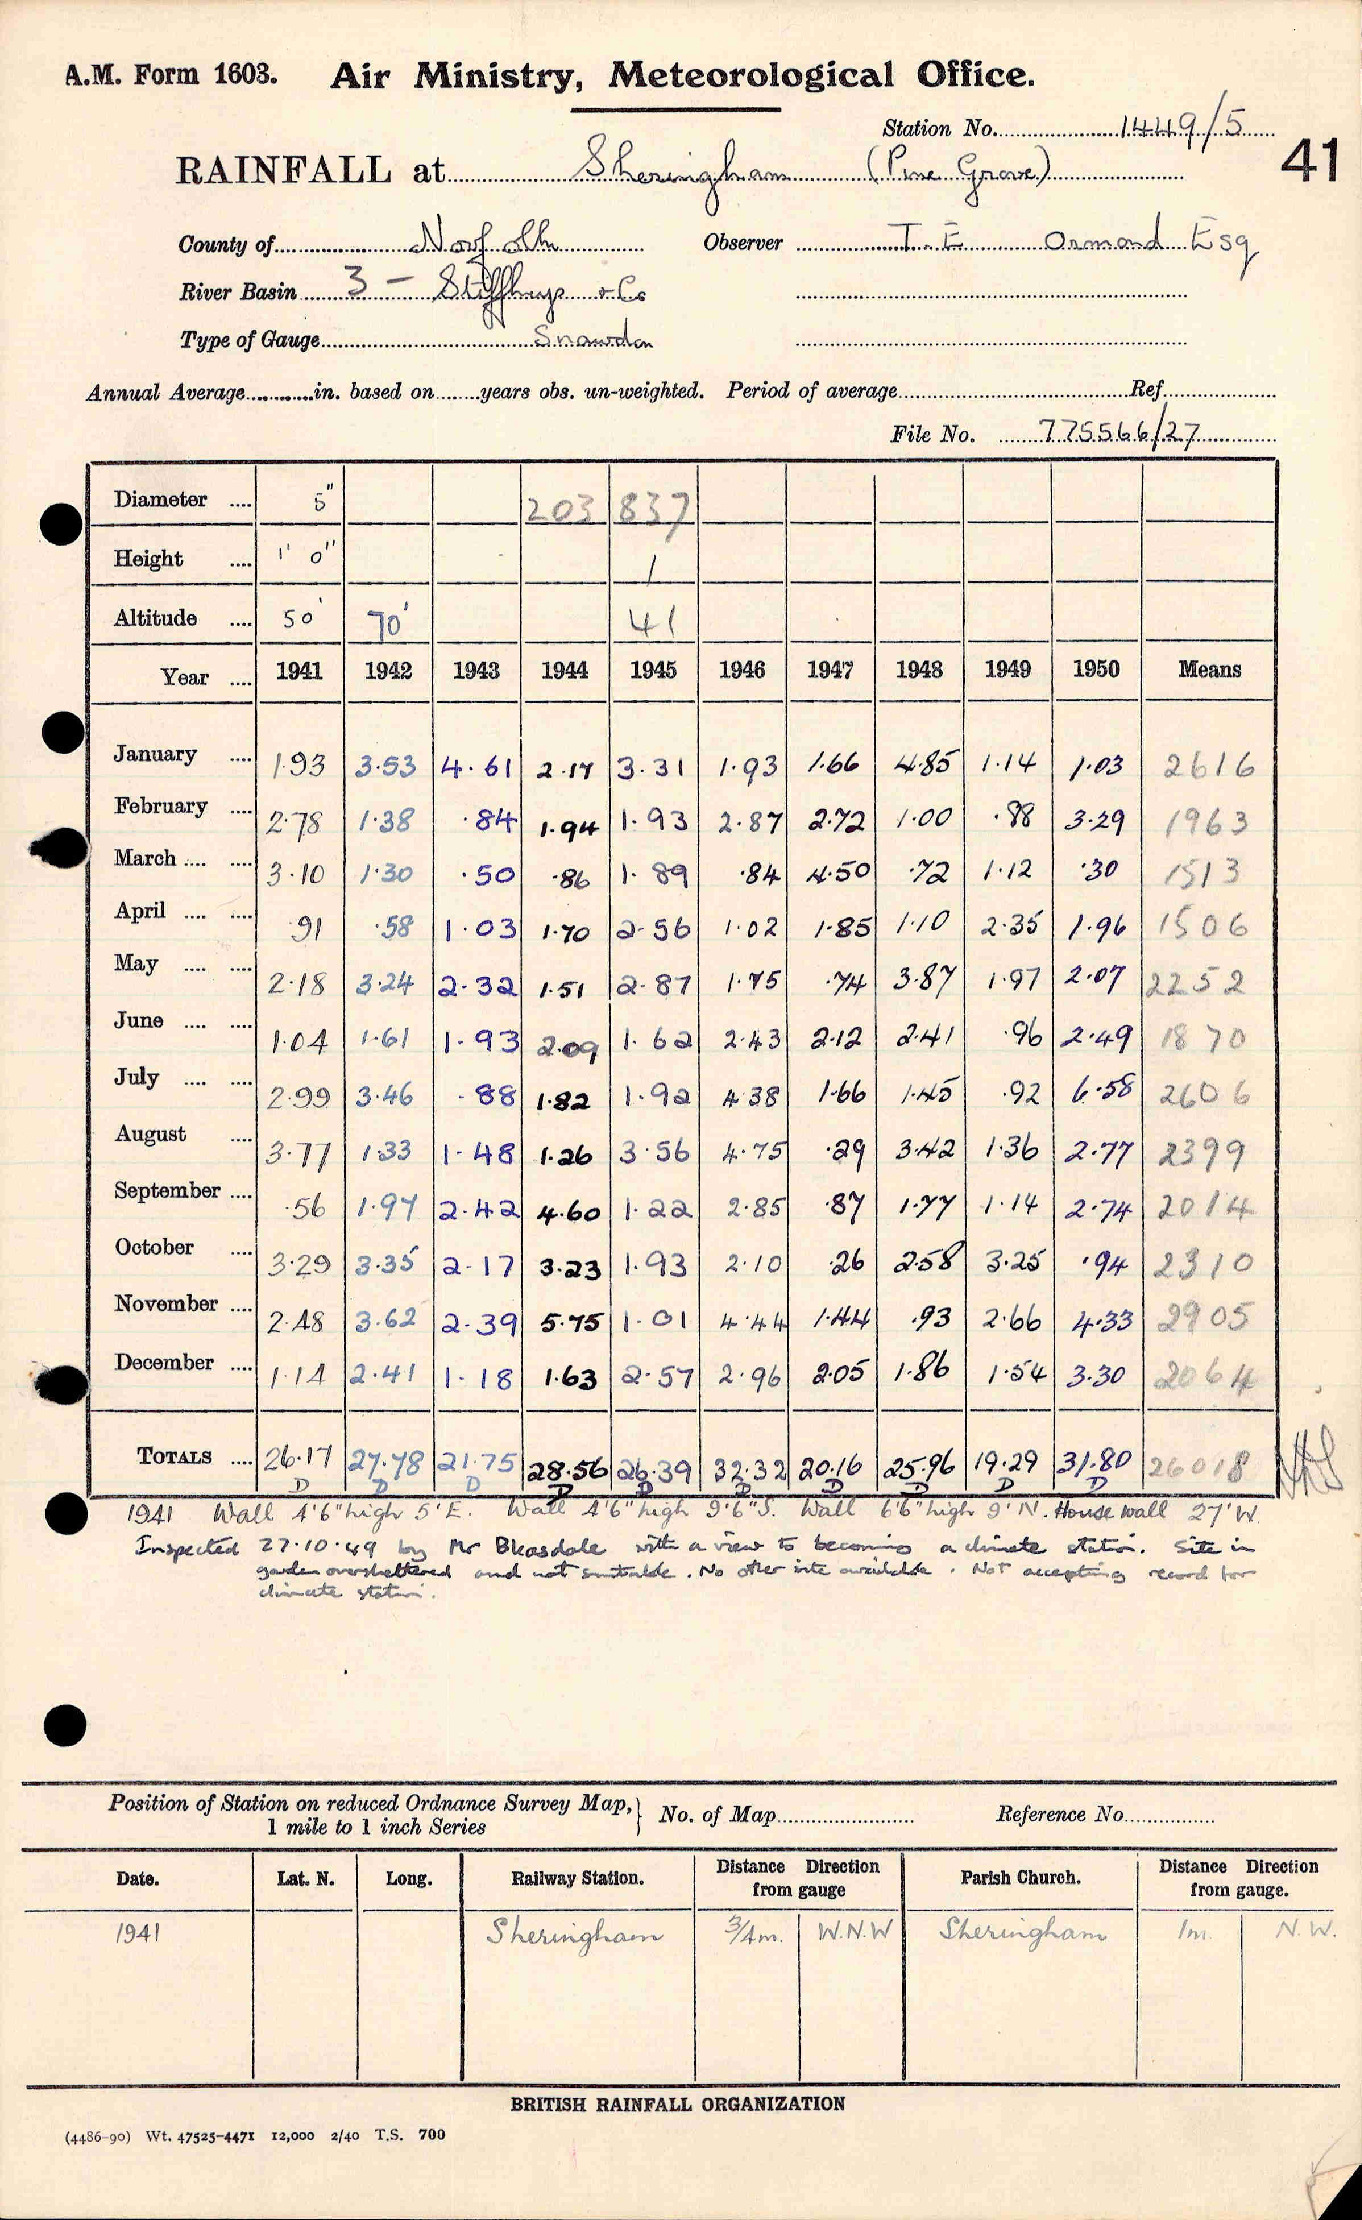 A.M. Form 1603. Air Ministry, Meteorological Office.
Station No. 1449/5
41
RAINFALL at Sheringham (Pine Grove)
County of Norfolk Observer T. E Ormond Esq
River Basin 3 - Stiffkey & Co
Type of Gauge Snowdon
Annual Average in. based on years obs. un-weighted. Period of average Ref.
File No. 775566/27
Diameter .... 5" 203 837
Height .... 1' 0" 1
Altitude .... 50' 70' 41
Year .... 1941 1942 1943 1944 1945 1946 1947 1948 1949 1950 Means
January .... 1.93 3.53 4.61 2.17 3.31 1.93 1.66 4.85 1.14 1.03 2616
February .... 2.78 1.38 .84 1.94 1.93 2.87 2.72 1.00 .88 3.29 1963
March .... .... 3.10 1.30 .50 .86 1.89 .84 4.50 .72 1.12 .30 1513
April .... .... .91 .58 1.03 1.70 2.56 1.02 1.85 1.10 2.35 1.96 1506
May .... .... 2.18 3.24 2.32 1.51 2.87 1.75 .74 3.87 1.97 2.07 2252
June .... .... 1.04 1.61 1.93 2.09 1.62 2.43 2.12 2.41 .96 2.49 1870
July .... .... 2.99 3.46 .88 1.82 1.92 4.38 1.66 1.45 .92 6.58 2606
August .... 3.77 1.33 1.48 1.26 3.56 4.75 .29 3.42 1.36 2.77 2399
September .... .56 1.97 2.42 4.60 1.22 2.85 .87 1.77 1.14 2.74 2014
October .... 3.29 3.35 2.17 3.23 1.93 2.10 .26 2.58 3.25 .94 2310
November .... 2.48 3.62 2.39 5.75 1.01 4.44 1.44 .93 2.66 4.33 2905
December .... 1.14 2.41 1.18 1.63 2.57 2.96 2.05 1.86 1.54 3.30 2064
TOTALS .... 26.17 27.78 21.75 28.56 26.39 32.32 20.16 25.96 19.29 31.80 26018
D D D D D D D D D D
1941 Wall 4'6" high 5' E. Wall 4'6" high 9'6" S. Wall 6'6" high 9' N. House wall 27' W.
Inspected 27.10.49 by Mr Bleasdale with a view to becoming a climate station. Site in
garden oversheltered and not suitable. No other site available. Not accepting record for
climate station.
Position of Station on reduced Ordnance Survey Map, 1 mile to 1 inch Series } No. of Map Reference No.
Date. Lat. N. Long. Railway Station. Distance Direction from gauge Parish Church. Distance Direction from gauge.
1941 Sheringham 3/4m. W.N.W Sheringham 1m. N.W.
BRITISH RAINFALL ORGANIZATION
(4486-90) Wt. 47525-4471 12,000 2/40 T.S. 700